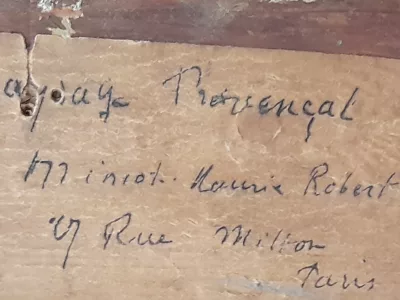 aysage Provençal
Minot. Maurice Robert
27 Rue Milton
Paris